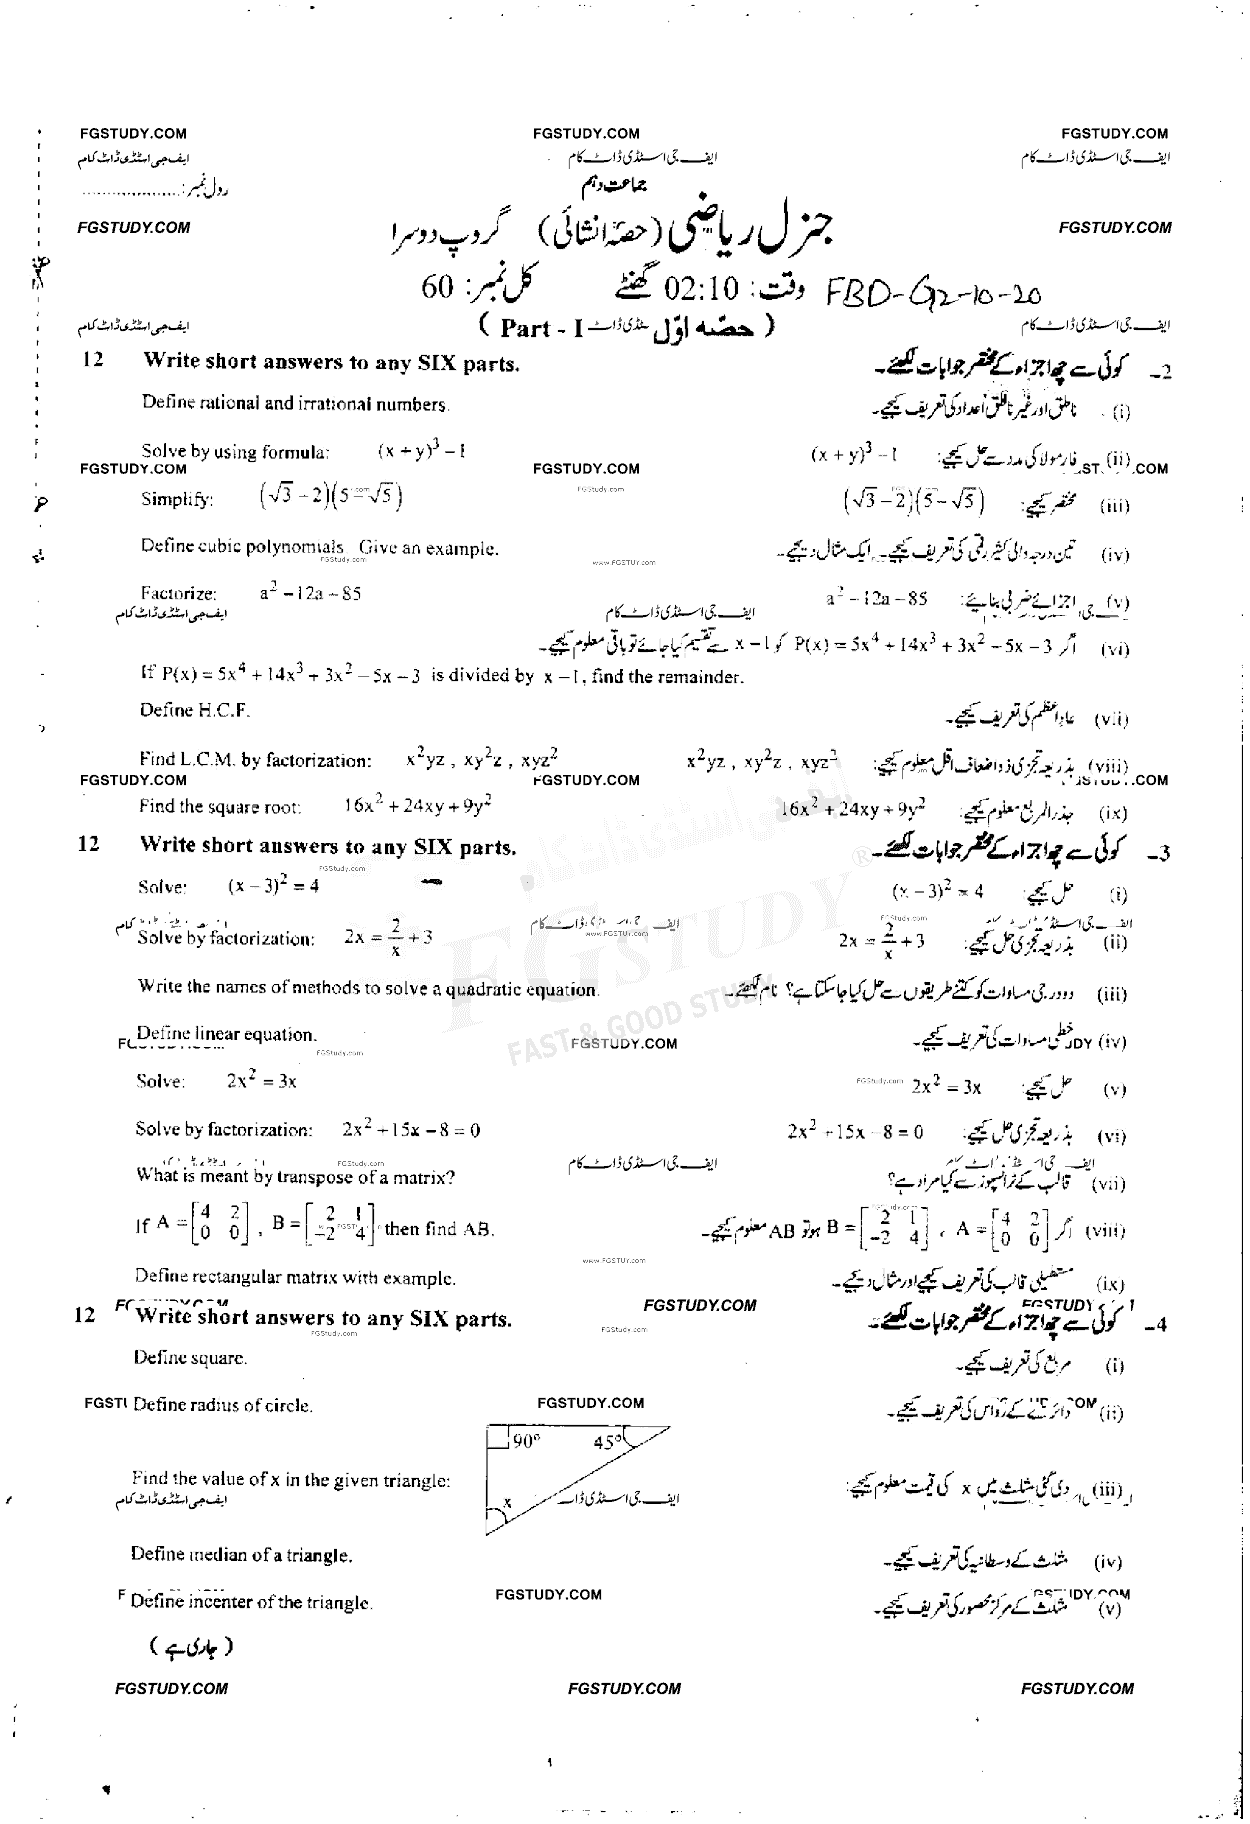 FGSTUDY.COM FGSTUDY.COM FGSTUDY.COM
ایف جی اسٹڈی ڈاٹ کام ایف جی اسٹڈی ڈاٹ کام ایف جی اسٹڈی ڈاٹ کام
جماعت دہم رول نمبر: ....................
FGSTUDY.COM جنرل ریاضی (حصہ انشائی) گروپ دوسرا FGSTUDY.COM
وقت: 02:10 گھنٹے کل نمبر: 60 FBD-G2-10-20
ایف جی اسٹڈی ڈاٹ کام (حصّہ اوّل Part - I) ایف جی اسٹڈی ڈاٹ کام
12 Write short answers to any SIX parts. کوئی سے چھ اجزاء کے مختصر جوابات لکھئے۔ 2-
Define rational and irrational numbers. ناطق اور غیر ناطق اعداد کی تعریف کیجیے۔ (i)
Solve by using formula: (x + y)³ − 1 (x + y)³ − 1 فارمولا کی مدد سے حل کیجیے: (ii)
FGSTUDY.COM FGSTUDY.COM .COM
Simplify: (√3 − 2)(5 − √5) (√3 − 2)(5 − √5) مختصر کیجیے: (iii)
Define cubic polynomials. Give an example. تین درجہ والی کثیر رقمی کی تعریف کیجیے۔ ایک مثال دیجیے۔ (iv)
Factorize: a² − 12a − 85 a² − 12a − 85 اجزائے ضربی بنائیے: (v)
ایف جی اسٹڈی ڈاٹ کام ایف جی اسٹڈی ڈاٹ کام
اگر P(x) = 5x⁴ + 14x³ + 3x² − 5x − 3 کو x − 1 سے تقسیم کیا جائے تو باقی معلوم کیجیے۔ (vi)
If P(x) = 5x⁴ + 14x³ + 3x² − 5x − 3 is divided by x − 1, find the remainder.
Define H.C.F. عاد اعظم کی تعریف کیجیے۔ (vii)
Find L.C.M. by factorization: x²yz , xy²z , xyz² x²yz , xy²z , xyz² بذریعہ تجزی ذواضعاف اقل معلوم کیجیے: (viii)
FGSTUDY.COM FGSTUDY.COM .COM
Find the square root: 16x² + 24xy + 9y² 16x² + 24xy + 9y² جذرالمربع معلوم کیجیے: (ix)
12 Write short answers to any SIX parts. کوئی سے چھ اجزاء کے مختصر جوابات لکھئے۔ 3-
Solve: (x − 3)² = 4 (x − 3)² = 4 حل کیجیے: (i)
Solve by factorization: 2x = 2/x + 3 2x = 2/x + 3 بذریعہ تجزی حل کیجیے: (ii)
Write the names of methods to solve a quadratic equation. دو درجی مساوات کو کتنے طریقوں سے حل کیا جا سکتا ہے؟ نام لکھئے۔ (iii)
FGSTUDY
FAST & GOOD STUDY
Define linear equation. خطی مساوات کی تعریف کیجیے۔ (iv)
FGSTUDY.COM
Solve: 2x² = 3x 2x² = 3x حل کیجیے: (v)
Solve by factorization: 2x² + 15x − 8 = 0 2x² + 15x − 8 = 0 بذریعہ تجزی حل کیجیے: (vi)
ایف جی اسٹڈی ڈاٹ کام
What is meant by transpose of a matrix? قالب کے ٹرانسپوز سے کیا مراد ہے؟ (vii)
If A = [4 2; 0 0] , B = [2 1; −2 4] then find AB. اگر A = [4 2; 0 0] ، B = [2 1; −2 4] ہو تو AB معلوم کیجیے۔ (viii)
Define rectangular matrix with example. مستطیلی قالب کی تعریف کیجیے اور مثال دیجیے۔ (ix)
FGSTUDY.COM FGSTUDY
12 Write short answers to any SIX parts. کوئی سے چھ اجزاء کے مختصر جوابات لکھئے۔ 4-
Define square. مربع کی تعریف کیجیے۔ (i)
Define radius of circle. FGSTUDY.COM دائرے کے رداس کی تعریف کیجیے۔ (ii)
90° 45°
Find the value of x in the given triangle: دی گئی مثلث میں x کی قیمت معلوم کیجیے: (iii)
ایف جی اسٹڈی ڈاٹ کام x ایف جی اسٹڈی ڈاٹ
Define median of a triangle. مثلث کے وسطانیہ کی تعریف کیجیے۔ (iv)
FGSTUDY.COM
Define incenter of the triangle. مثلث کے مرکز محصور کی تعریف کیجیے۔ (v)
(جاری ہے)
FGSTUDY.COM FGSTUDY.COM FGSTUDY.COM